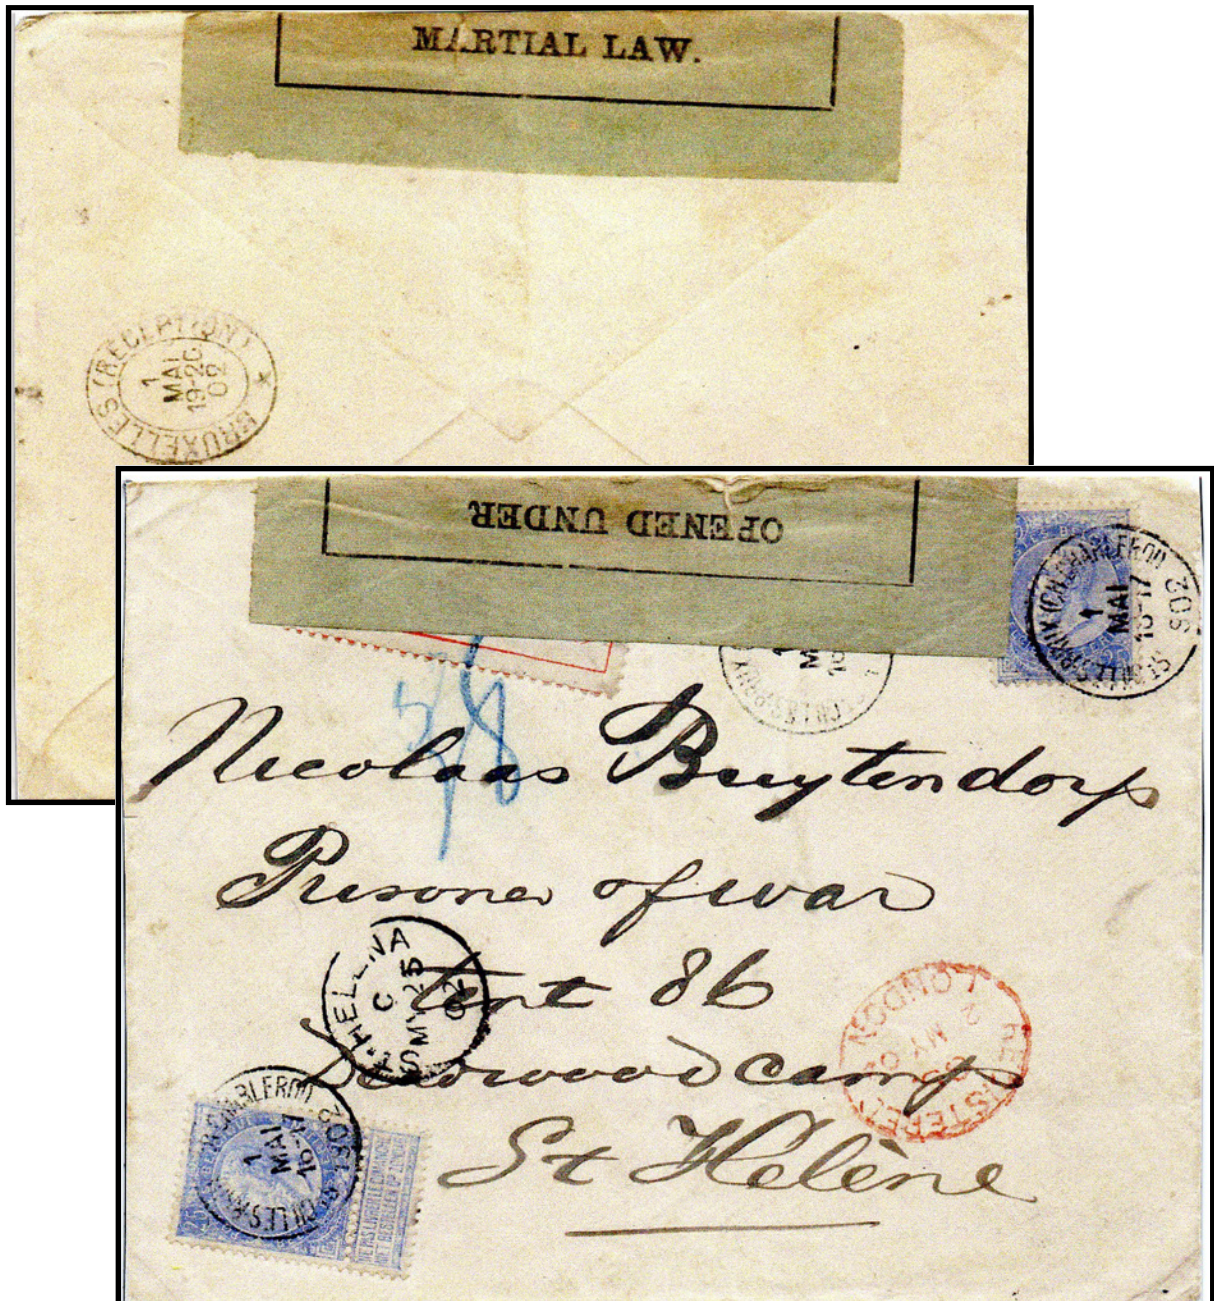 MARTIAL LAW.
BRUXELLES (RECEPTION)
1
MAI
19-20
02
OPENED UNDER
25
1
MAI
16-17
302
5/8
Nicolaas Buytendorp
Prisoner of war
tent 86
Deadwood camp
St Hélène
ST. HELENA
C
MY 25
02
REGISTERED
LONDON
2 MY 02
25
1
MAI
302
NE PAS LIVRER LE DIMANCHE
NIET BESTELLEN OP ZONDAG